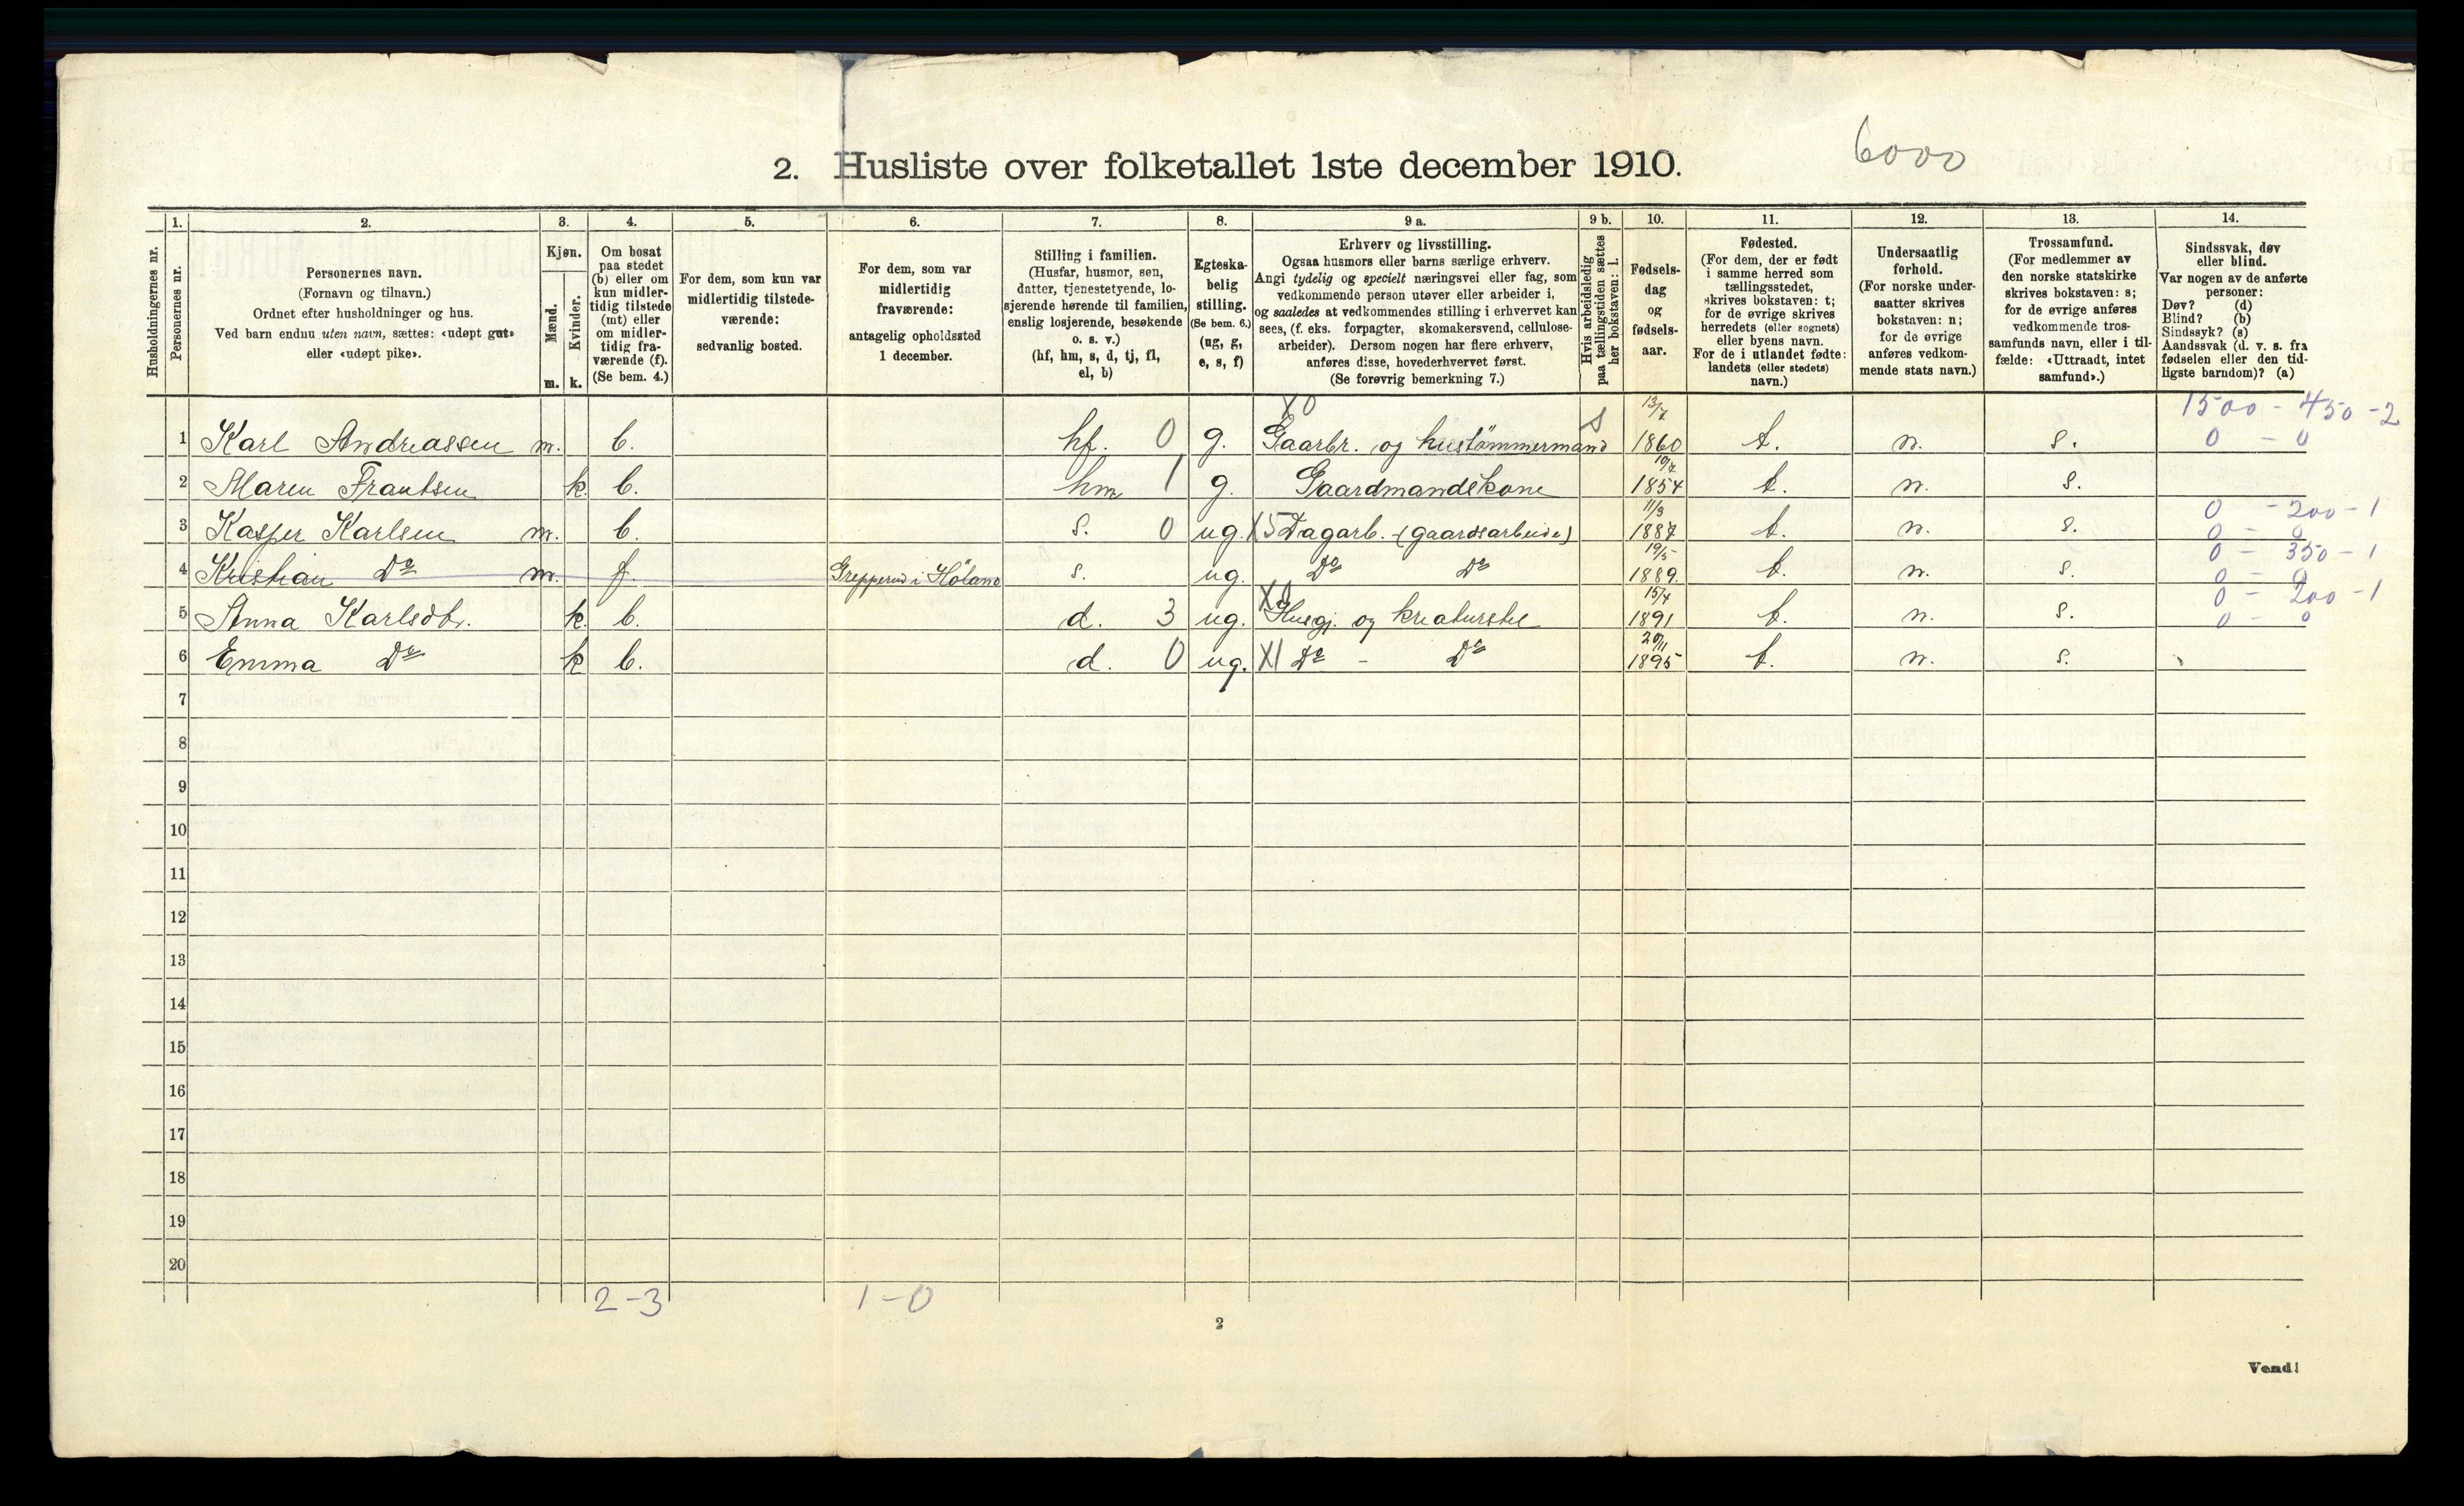 6000
2. Husliste over folketallet 1ste december 1910.
Husholdningernes nr.
1.
Personernes nr.
2.
Personernes navn.
(Fornavn og tilnavn.)
Ordnet efter husholdninger og hus.
Ved barn endnu uten navn, sættes: «udøpt gut»
eller «udøpt pike».
3.
Kjøn.
Mænd.
m.
Kvinder.
k.
4.
Om bosat
paa stedet
(b) eller om
kun midler-
tidig tilstede
(mt) eller
om midler-
tidig fra-
værende (f).
(Se bem. 4.)
5.
For dem, som kun var
midlertidig tilstede-
værende:
sedvanlig bosted.
6.
For dem, som var
midlertidig
fraværende:
antagelig opholdssted
1 december.
7.
Stilling i familien.
(Husfar, husmor, søn,
datter, tjenestetyende, lo-
sjerende hørende til familien,
enslig losjerende, besøkende
o. s. v.)
(hf, hm, s, d, tj, fl,
el, b)
8.
Egteska-
belig
stilling.
(Se bem. 6.)
(ug, g,
e, s, f)
9 a.
Erhverv og livsstilling.
Ogsaa husmors eller barns særlige erhverv.
Angi tydelig og specielt næringsvei eller fag, som
vedkommende person utøver eller arbeider i,
og saaledes at vedkommendes stilling i erhvervet kan
sees, (f. eks. forpagter, skomakersvend, cellulose-
arbeider). Dersom nogen har flere erhverv,
anføres disse, hovederhvervet først.
(Se forøvrig bemerkning 7.)
9 b.
Hvis arbeidsledig
paa tællingstiden sættes
her bokstaven: l.
10.
Fødsels-
dag
og
fødsels-
aar.
11.
Fødested.
(For dem, der er født
i samme herred som
tællingsstedet,
skrives bokstaven: t;
for de øvrige skrives
herredets (eller sognets)
eller byens navn.
For de i utlandet fødte:
landets (eller stedets)
navn.)
12.
Undersaatlig
forhold.
(For norske under-
saatter skrives
bokstaven: n;
for de øvrige
anføres vedkom-
mende stats navn.)
13.
Trossamfund.
(For medlemmer av
den norske statskirke
skrives bokstaven: s;
for de øvrige anføres
vedkommende tros-
samfunds navn, eller i til-
fælde: «Uttraadt, intet
samfund».)
14.
Sindssvak, døv
eller blind.
Var nogen av de anførte
personer:
Døv? (d)
Blind? (b)
Sindssyk? (s)
Aandssvak (d. v. s. fra
fødselen eller den tid-
ligste barndom)? (a)
X0 13/7 1500 - 450 - 2
1 Karl Andreassen m. b. hf. 0 g. Gaarbr. og hustömmermand 1860 t. n. s. 0 - 0
2 Maren Frantsen k. b. hm 1 g. Gaardmandskone 10/7 1854 t. n. s.
3 Kasper Karlsen m. b. s. 0 ug. X5 Dagarb. (gaardsarbeide) 11/3 1887 t. n. s. 0 - 200 - 1
0 - 0
4 Kristian Do m. f. Grepperud i Höland s. ug. Do Do 19/5 1889 t. n. s. 0 - 350 - 1
0 - 0
5 Anna Karlsdtr. k. b. d. 3 ug. X0 Husgj. og kreaturstel 15/4 1891 t. n. s. 0 - 200 - 1
0 - 0
6 Emma Do k b. d. 0 ug. X1 Do - Do 20/11 1895 t. n. s.
7
8
9
10
11
12
13
14
15
16
17
18
19
20
2 - 3 1 - 0
2
Vend!